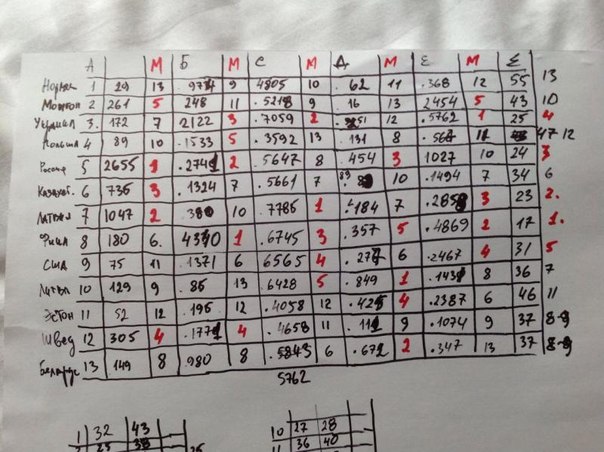 А М Б М С М Д М Е М Σ
Норвег 1 29 13 9 4805 10 .62 11 .368 12 55 13
Монгол 2 261 5 248 11 .5218 9 16 13 2454 5 43 10
3. 172 7 2122 3 .7059 2 12 .5762 1 25 4
Польша 4 89 10 .1533 5 .3592 13 .131 8 11 47 12
Россия 5 2655 1 2 .5647 8 .454 3 1027 10 24 3
Казахст. 6 735 3 .1324 7 .5661 7 10 .1494 7 34 6
Латвия 7 1047 2 10 7785 1 .184 7 3 23 2.
Финл 8 180 6. 1 .6745 3 .357 5 .4869 2 17 1.
США 9 75 11 .1371 6 6565 4 6 .2467 4 31 5
Литва 10 129 9 .86 13 .6428 5 .849 1 8 36 7
Эстон 11 52 12 .195 12 .4058 12 4 .2387 6 46 11
Швед 12 305 4 4 .4658 11 9 .1074 9 37 8-9
Беларус 13 149 8 980 8 .5843 6 2 .347 13 37 8-9
5762
1 32 43
10 27 28
36 40